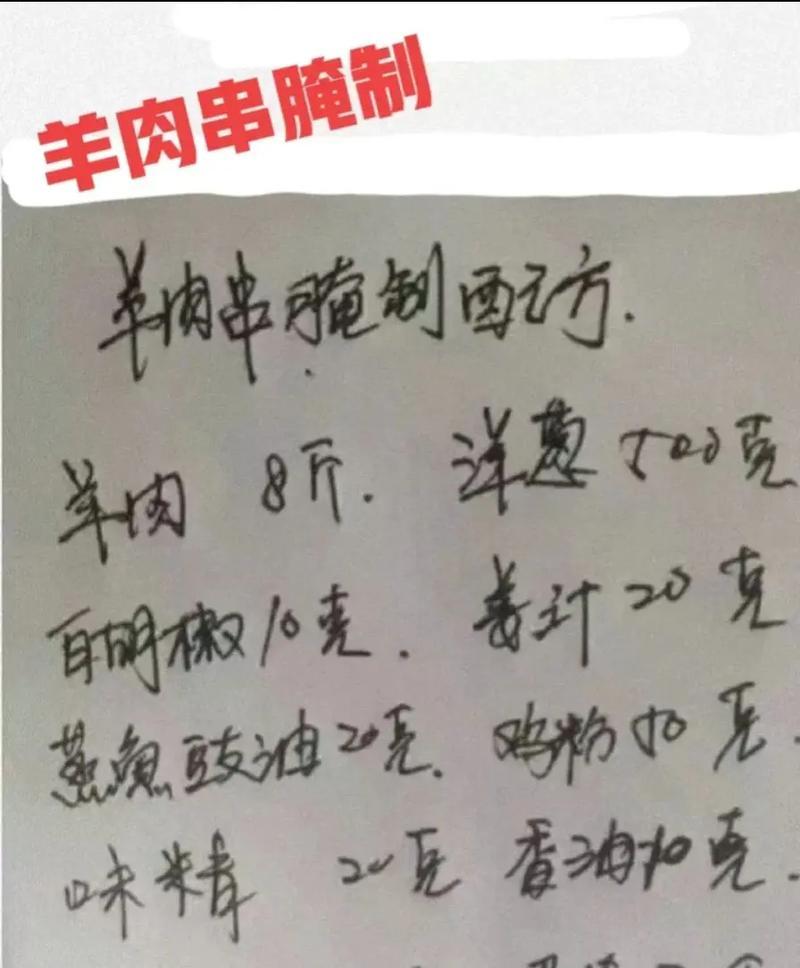 羊肉串腌制
羊肉串腌制配方.
羊肉 8斤. 洋葱 500克
白胡椒10克. 姜汁20克
蒸鱼豉油20克. 鸡粉10克.
味精 20克 香油10克.